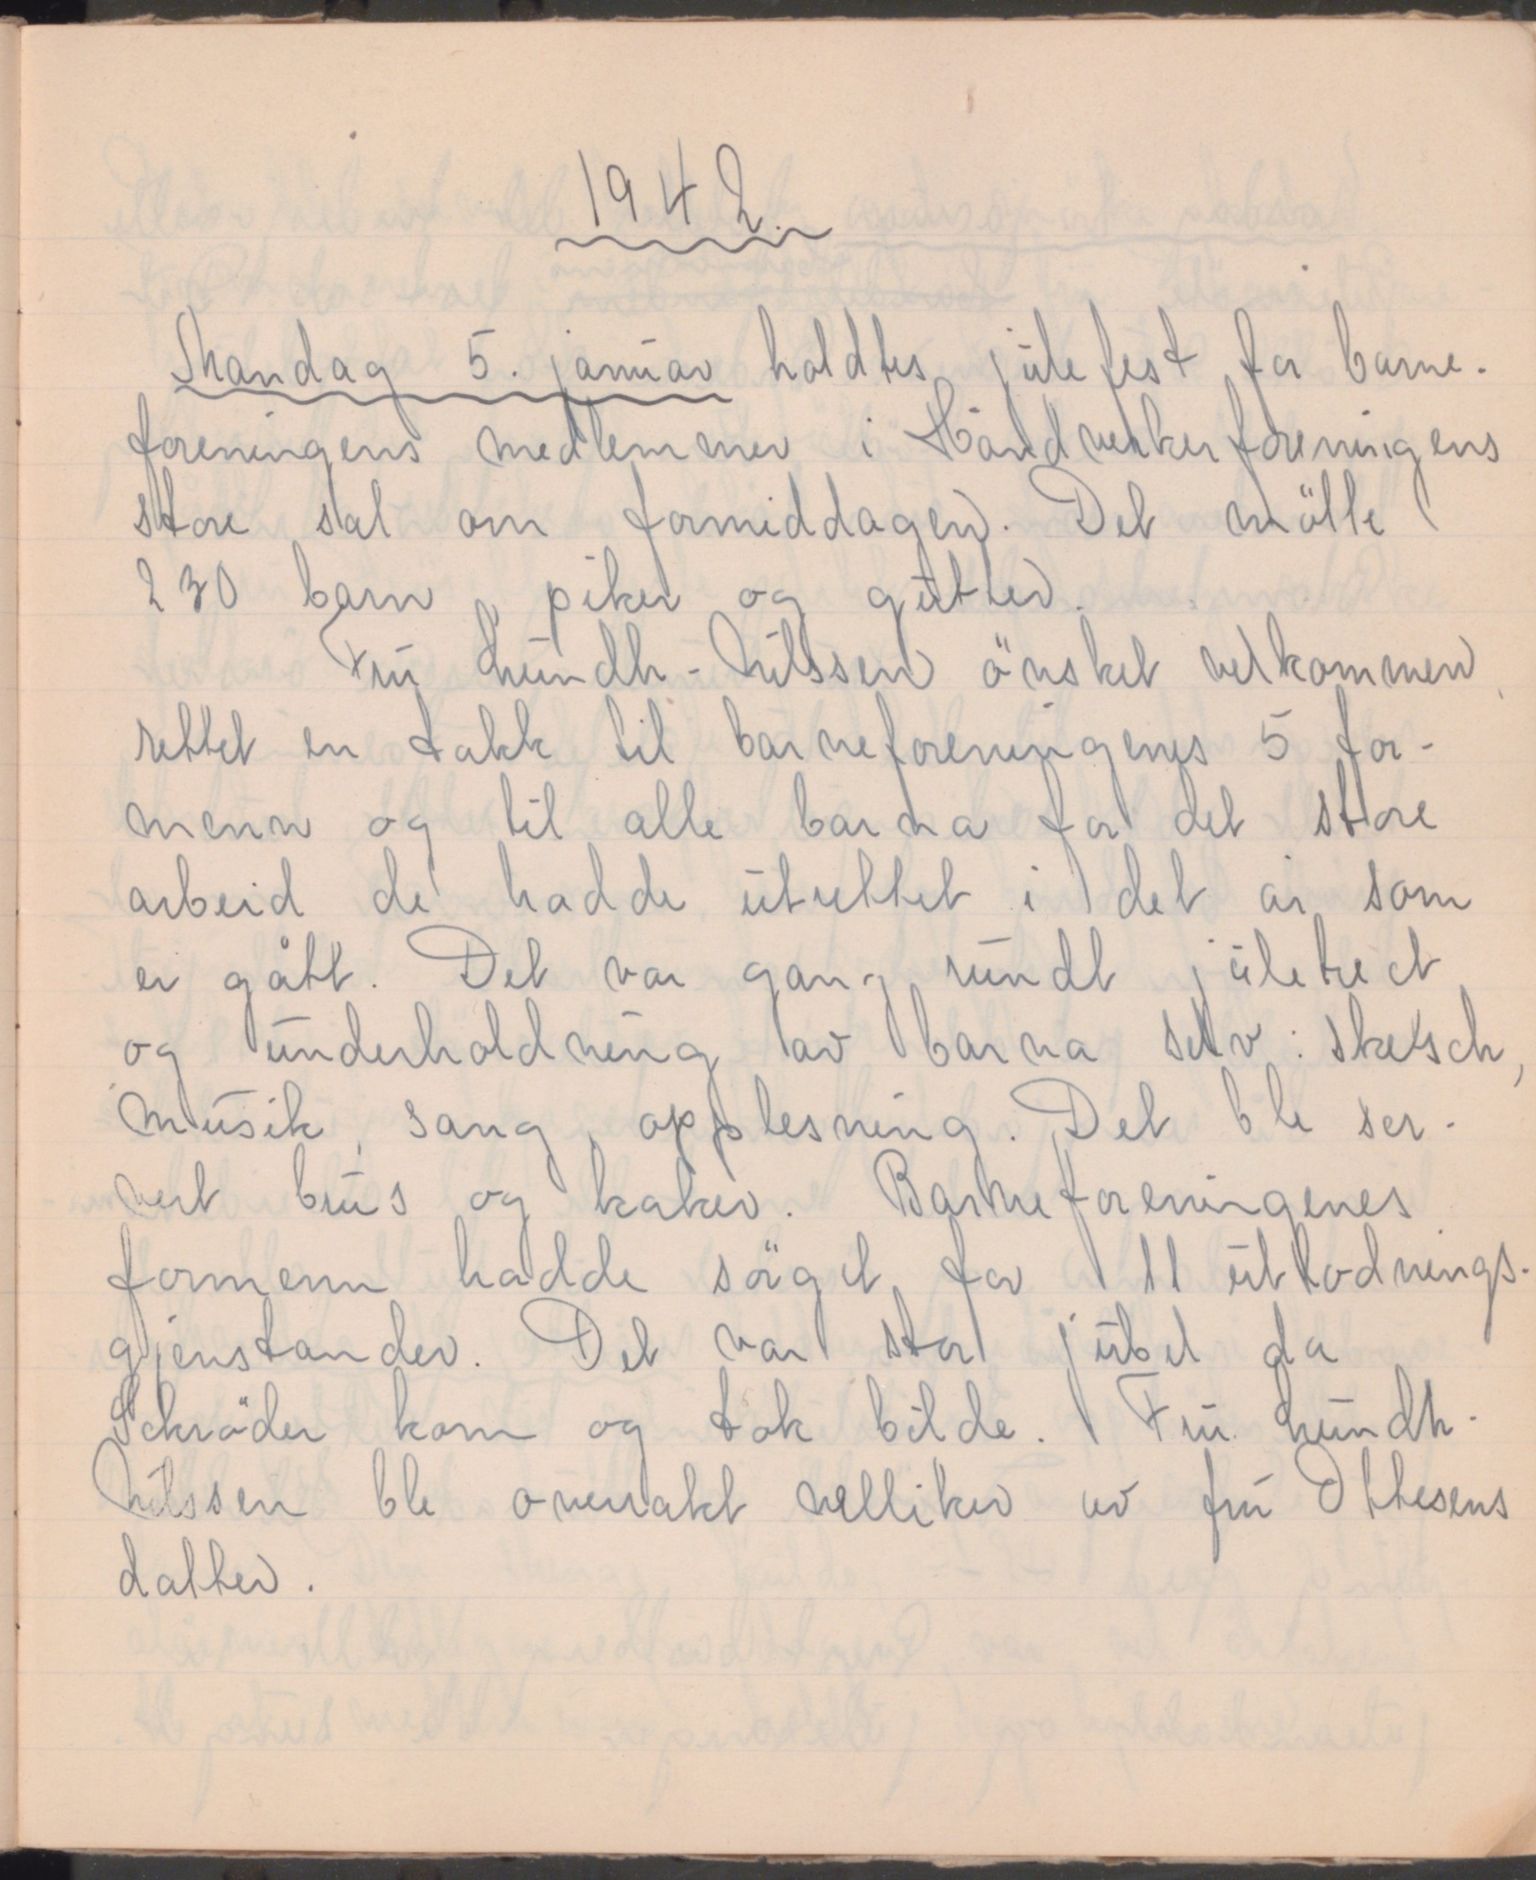 1942.
Mandag 5. januar holdtes julefest for barne-
foreningens medlemmer i Håndverkerforeningens
store sal om formiddagen. Det mötte
230 barn, piker og gutter.
Fru Lundh-Nilssen önsket velkommen,
rettet en takk til barneforeningenes 5 for-
menn og til alle barna for det store
arbeid de hadde utrettet i det år som
er gått. Det var gang rundt juletreet
og underholdning av barna selv: sketsch,
musik, sang, opplesning. Det ble ser-
vert brus og kaker. Barneforeningenes
formenn hadde sörget for 11 utlodnings-
gjenstander. Det var stor jubel da
Schröder kom og tok bilde. Fru Lundh-
Nilssen ble overrakt nelliker av fru Ottesens
datter.